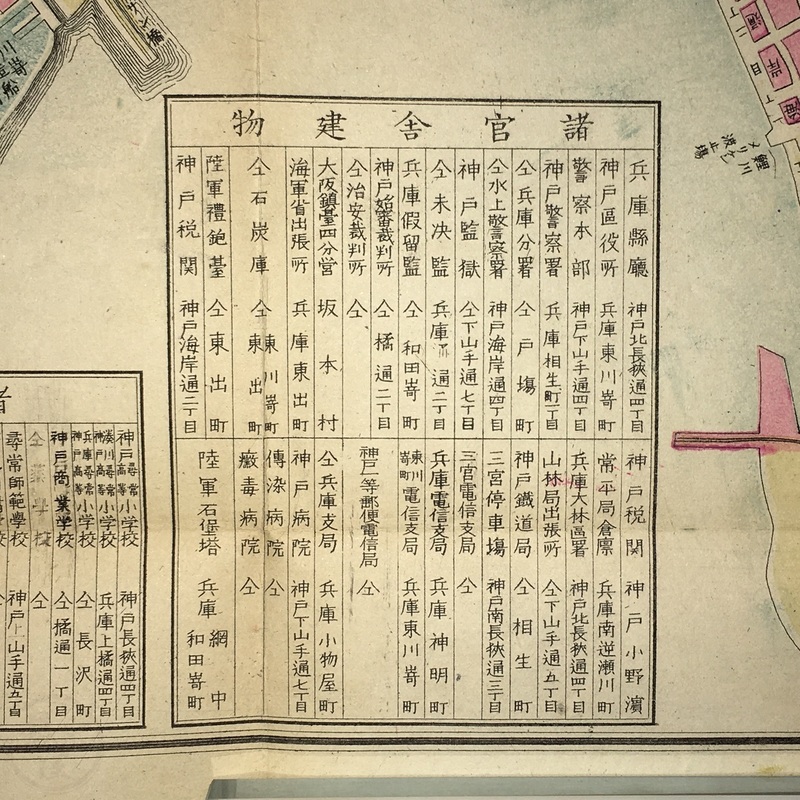 諸官舎建物
兵庫縣廳 神戸北長狹通四丁目
神戸區役所 兵庫東川嵜町
警察本部 神戸下山手通四丁目
神戸警察署 兵庫相生町一丁目
仝兵庫分署 仝戸塲町
仝水上警察署 神戸海岸通四丁目
神戸監獄 仝下山手通七丁目
仝未决監 兵庫通二丁目
兵庫假留監 仝和田嵜町
神戸始審裁判所 仝橘通二丁目
仝治安裁判所 仝
大阪鎮臺四分営 坂本村
海軍省出張所 兵庫東出町
仝石炭庫 仝東川嵜町 仝東出町
陸軍禮砲臺 仝東出町
神戸税関 神戸海岸通二丁目
神戸税関 神戸小野濵
常平局倉廩 兵庫南逆瀬川町
兵庫大林區署 神戸北長狹通四丁目
山林局出張所 仝下山手通五丁目
神戸鐵道局 仝相生町
三宮停車塲 神戸南長狹通三丁目
三宮電信支局 仝
兵庫電信支局 兵庫神明町
東川嵜町電信支局 兵庫東川嵜町
神戸一等郵便電信局 仝
仝兵庫支局 兵庫小物屋町
神戸病院 神戸下山手通七丁目
傳染病院 仝
癜毒病院 仝
陸軍石堡塔 兵庫和田嵜町網中
神戸尋常高等小学校 神戸長狹通四丁目
湊川尋常神戸高等小学校 兵庫上橘通四丁目
兵庫尋常神戸高等小学校 仝長沢町
神戸商業学校 仝橘通一丁目
仝業学校 仝
尋常師範學校 神戸下山手通五丁目
鯉川
メリケン
波止場